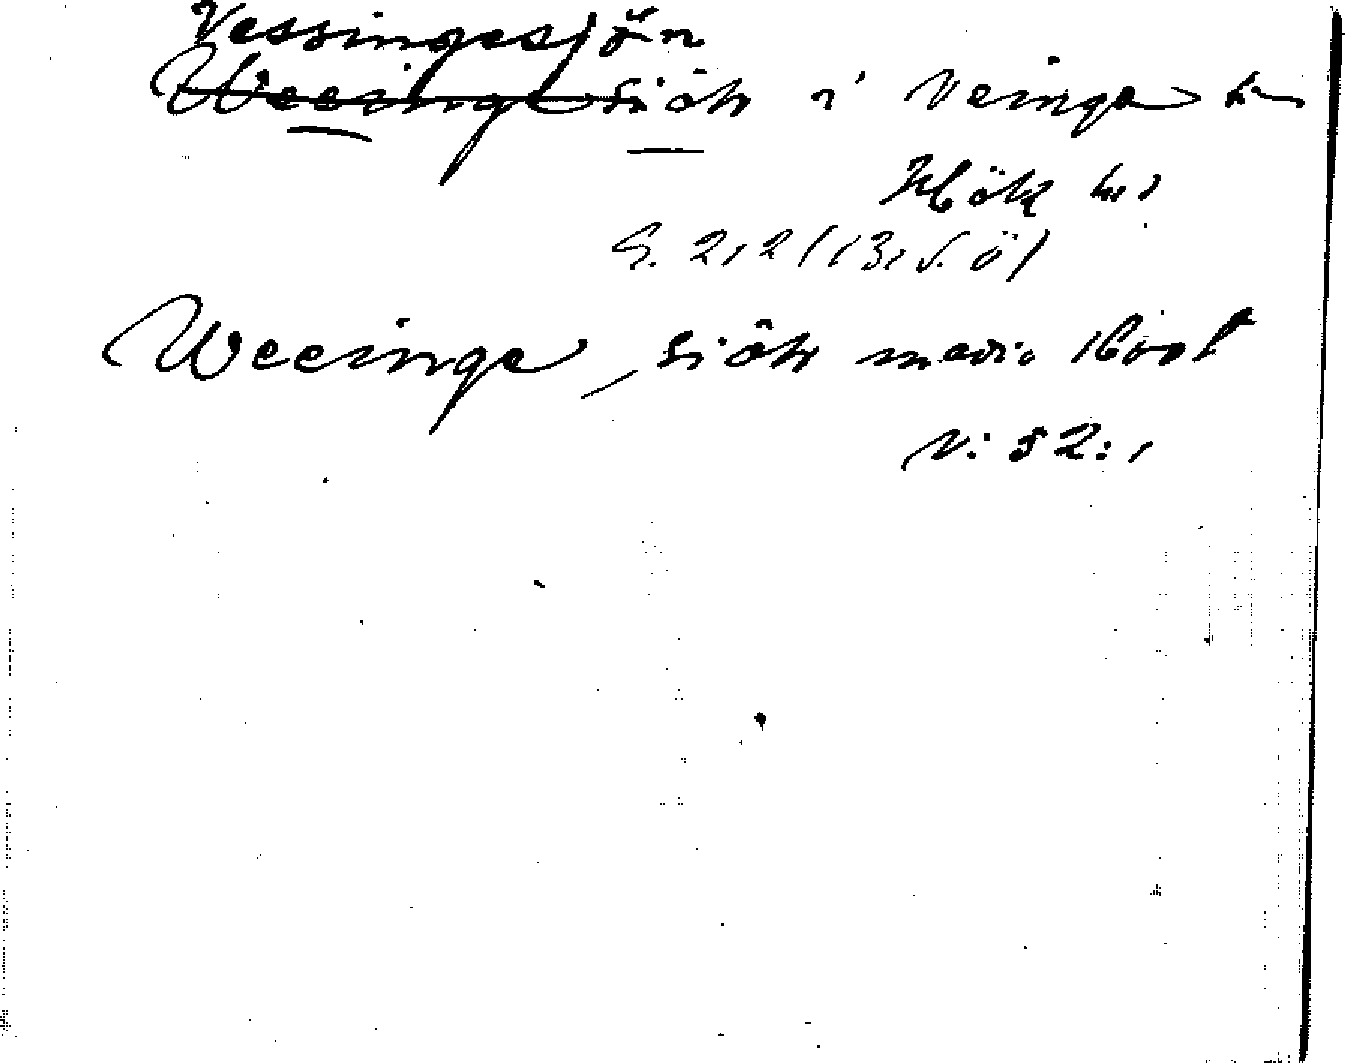 Vessingesjön
Weeinge siöh i Veinge sn
Höks hd
S. 212 (13, S. Ö)
Weeinge, siöh
v: 52: 1